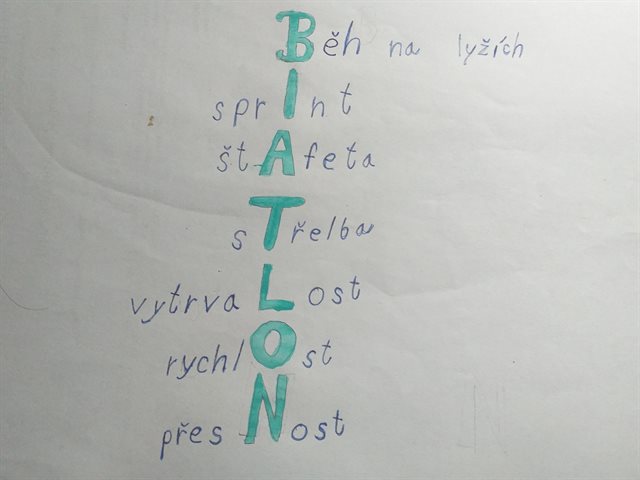 Běh na lyžích
sprInt
štAfeta
sTřelba
vytrvaLost
rychlOst
přesNost